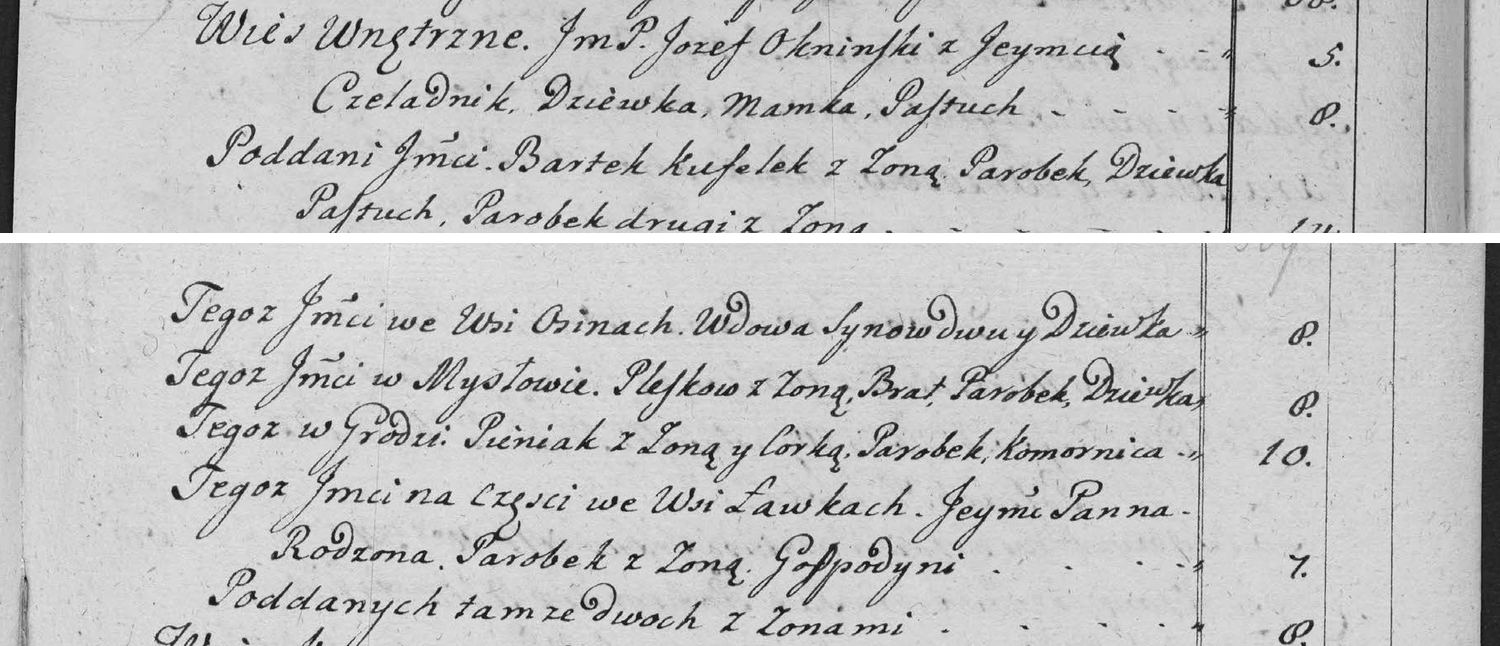 Wies Wnętrzne. JmP. Jozef Okninski z Jeymcią . . " 5.
Czeladnik, Dziewka, Mamka, Pastuch . . . . " 8.
Poddani Jmci. Bartek Kufelek z Zoną. Parobek, Dziewka
Pastuch, Parobek drugi z Zoną . . . .
Tegoz Jmci we Wsi Osinach. Wdowa Synow dwu y Dziewka " 8.
Tegoz Jmci w Mysłowie. Pleskow z Zoną, Brat, Parobek, Dziewka, 8.
Tegoz w Grodzi. Pieniak z Zoną y Corką, Parobek, Komornica . " 10.
Tegoz Jmci na Częsci we Wsi Ławkach. Jeymć Panna-
Rodzona. Parobek z Zoną. Gospodyni . . . . " 7.
Poddanych tamze dwoch z Zonami . . . . " 8.